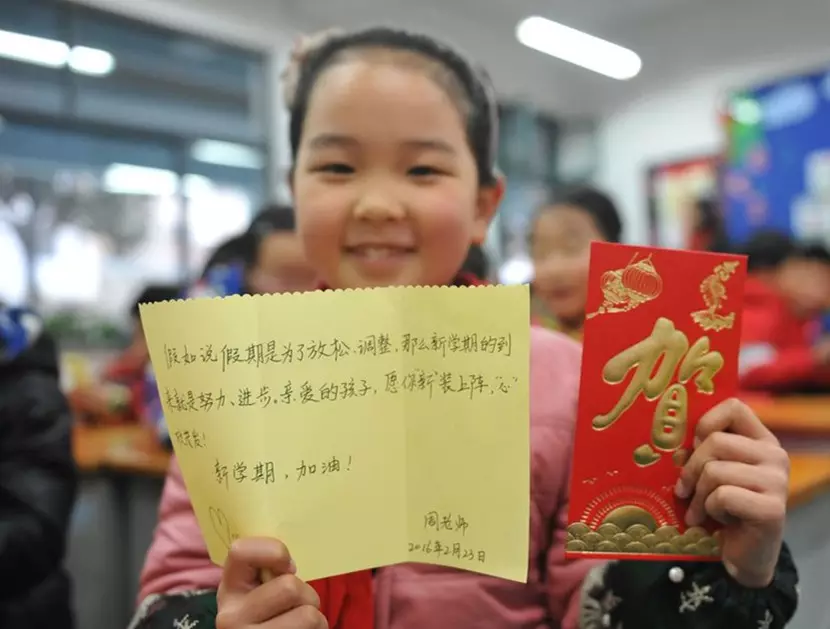 假如说假期是为了放松、调整,那么新学期的到
来就是努力、进步。亲爱的孩子,愿你“新”装上阵,“心”
发!
新学期,加油!
周老师
2016年2月23日
贺